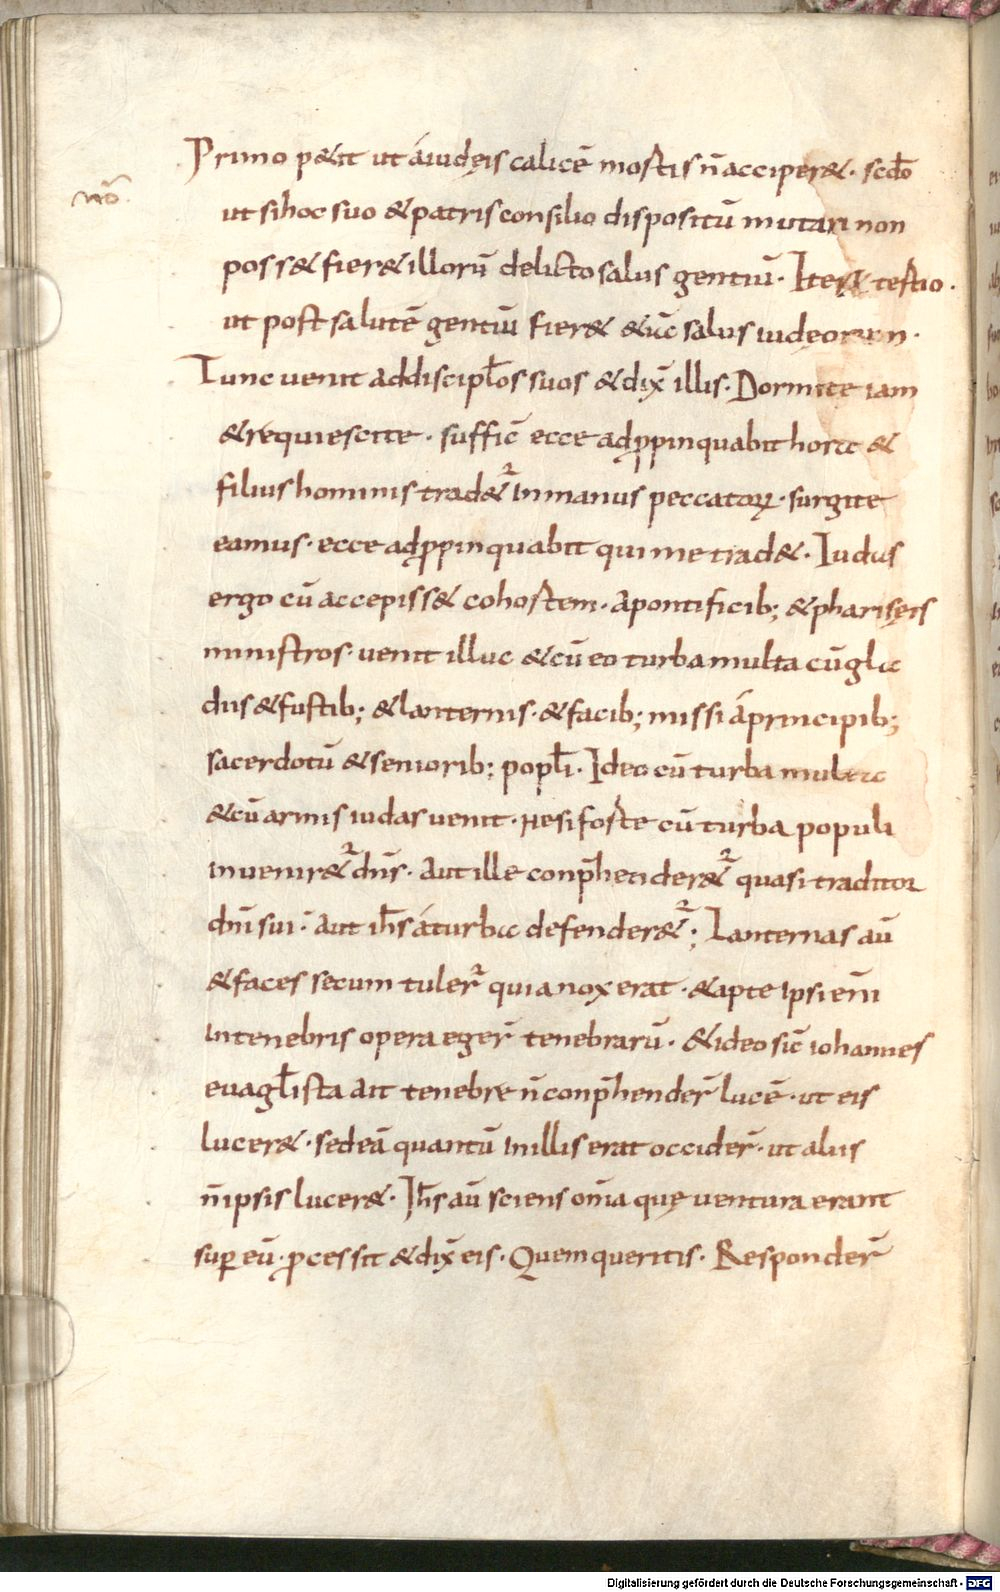 Primo p&it ut áiudęis calicē mortis n̄ acciper&· scdō
nō
ut si hoc suo & patris consilio dispositū mutari non
poss& fier& illorū delicto salus gentiū· Iterū tertio·
ut post salutē gentiū fier& &iā salus iudęorum·
Tunc uenit ad discipłos suos & dix̄ illis· Dormite iam
& requiescite· sufficē ecce adp̱pinquabit hora &
filius hominis trad&ur in manus peccatoꝝ· surgite
eamus· ecce adp̱pinquabit qui me trad&· Iudas
ergo cū accepiss& cohortem· a pontificib; & pharisęis
ministros· uenit illuc & cū eo turba multa cū gla
diis & fustib; & lanternis· & facib; missi á principib;
sacerdotū & seniorib; popłi· Ideo cū turba multa
& cū armis iudas uenit· ne si forte cū turba populi
inuenir&ur dn̄s· aut ille conp̄hender&ur quasi traditor
dn̄i sui· aut ih̄s á turba defender&ur; Lanternas aū
& faces secum tuler̄ quia nox erat· & apte ipsi eni̅
in tenebris opera eger̄ tenebrarū· & ideo sic̄ iohannes
euagłista ait tenebre n̄ conp̄hender̄ lucē· ut eis
lucer&· sed eā quantū in illis erat occider̄· ut aliis
n̄ ipsis lucer&· Ih̄s aū sciens om̄a quę uentura erant
suꝑ eū· ꝓcessit & dix̄ eis· Quem queritis· Responder̄
Digitalisierung gefördert durch die Deutsche Forschungsgemeinschaft - DFG